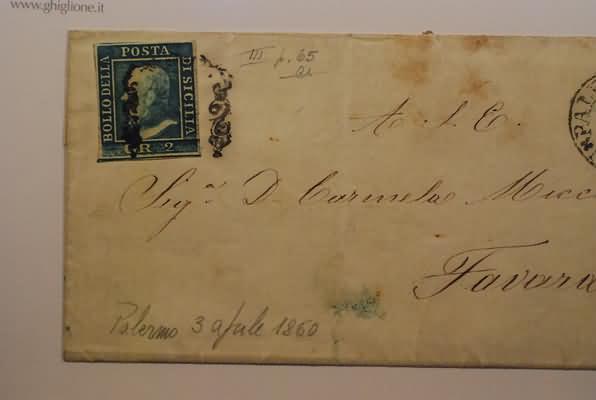 www.ghiglione.it
POSTA
BOLLO DELLA
DI SICILIA
GR 2
III p. 65
A S. E.
Sig.ª D. Carmela
Favara
Palermo 3 aprile 1860